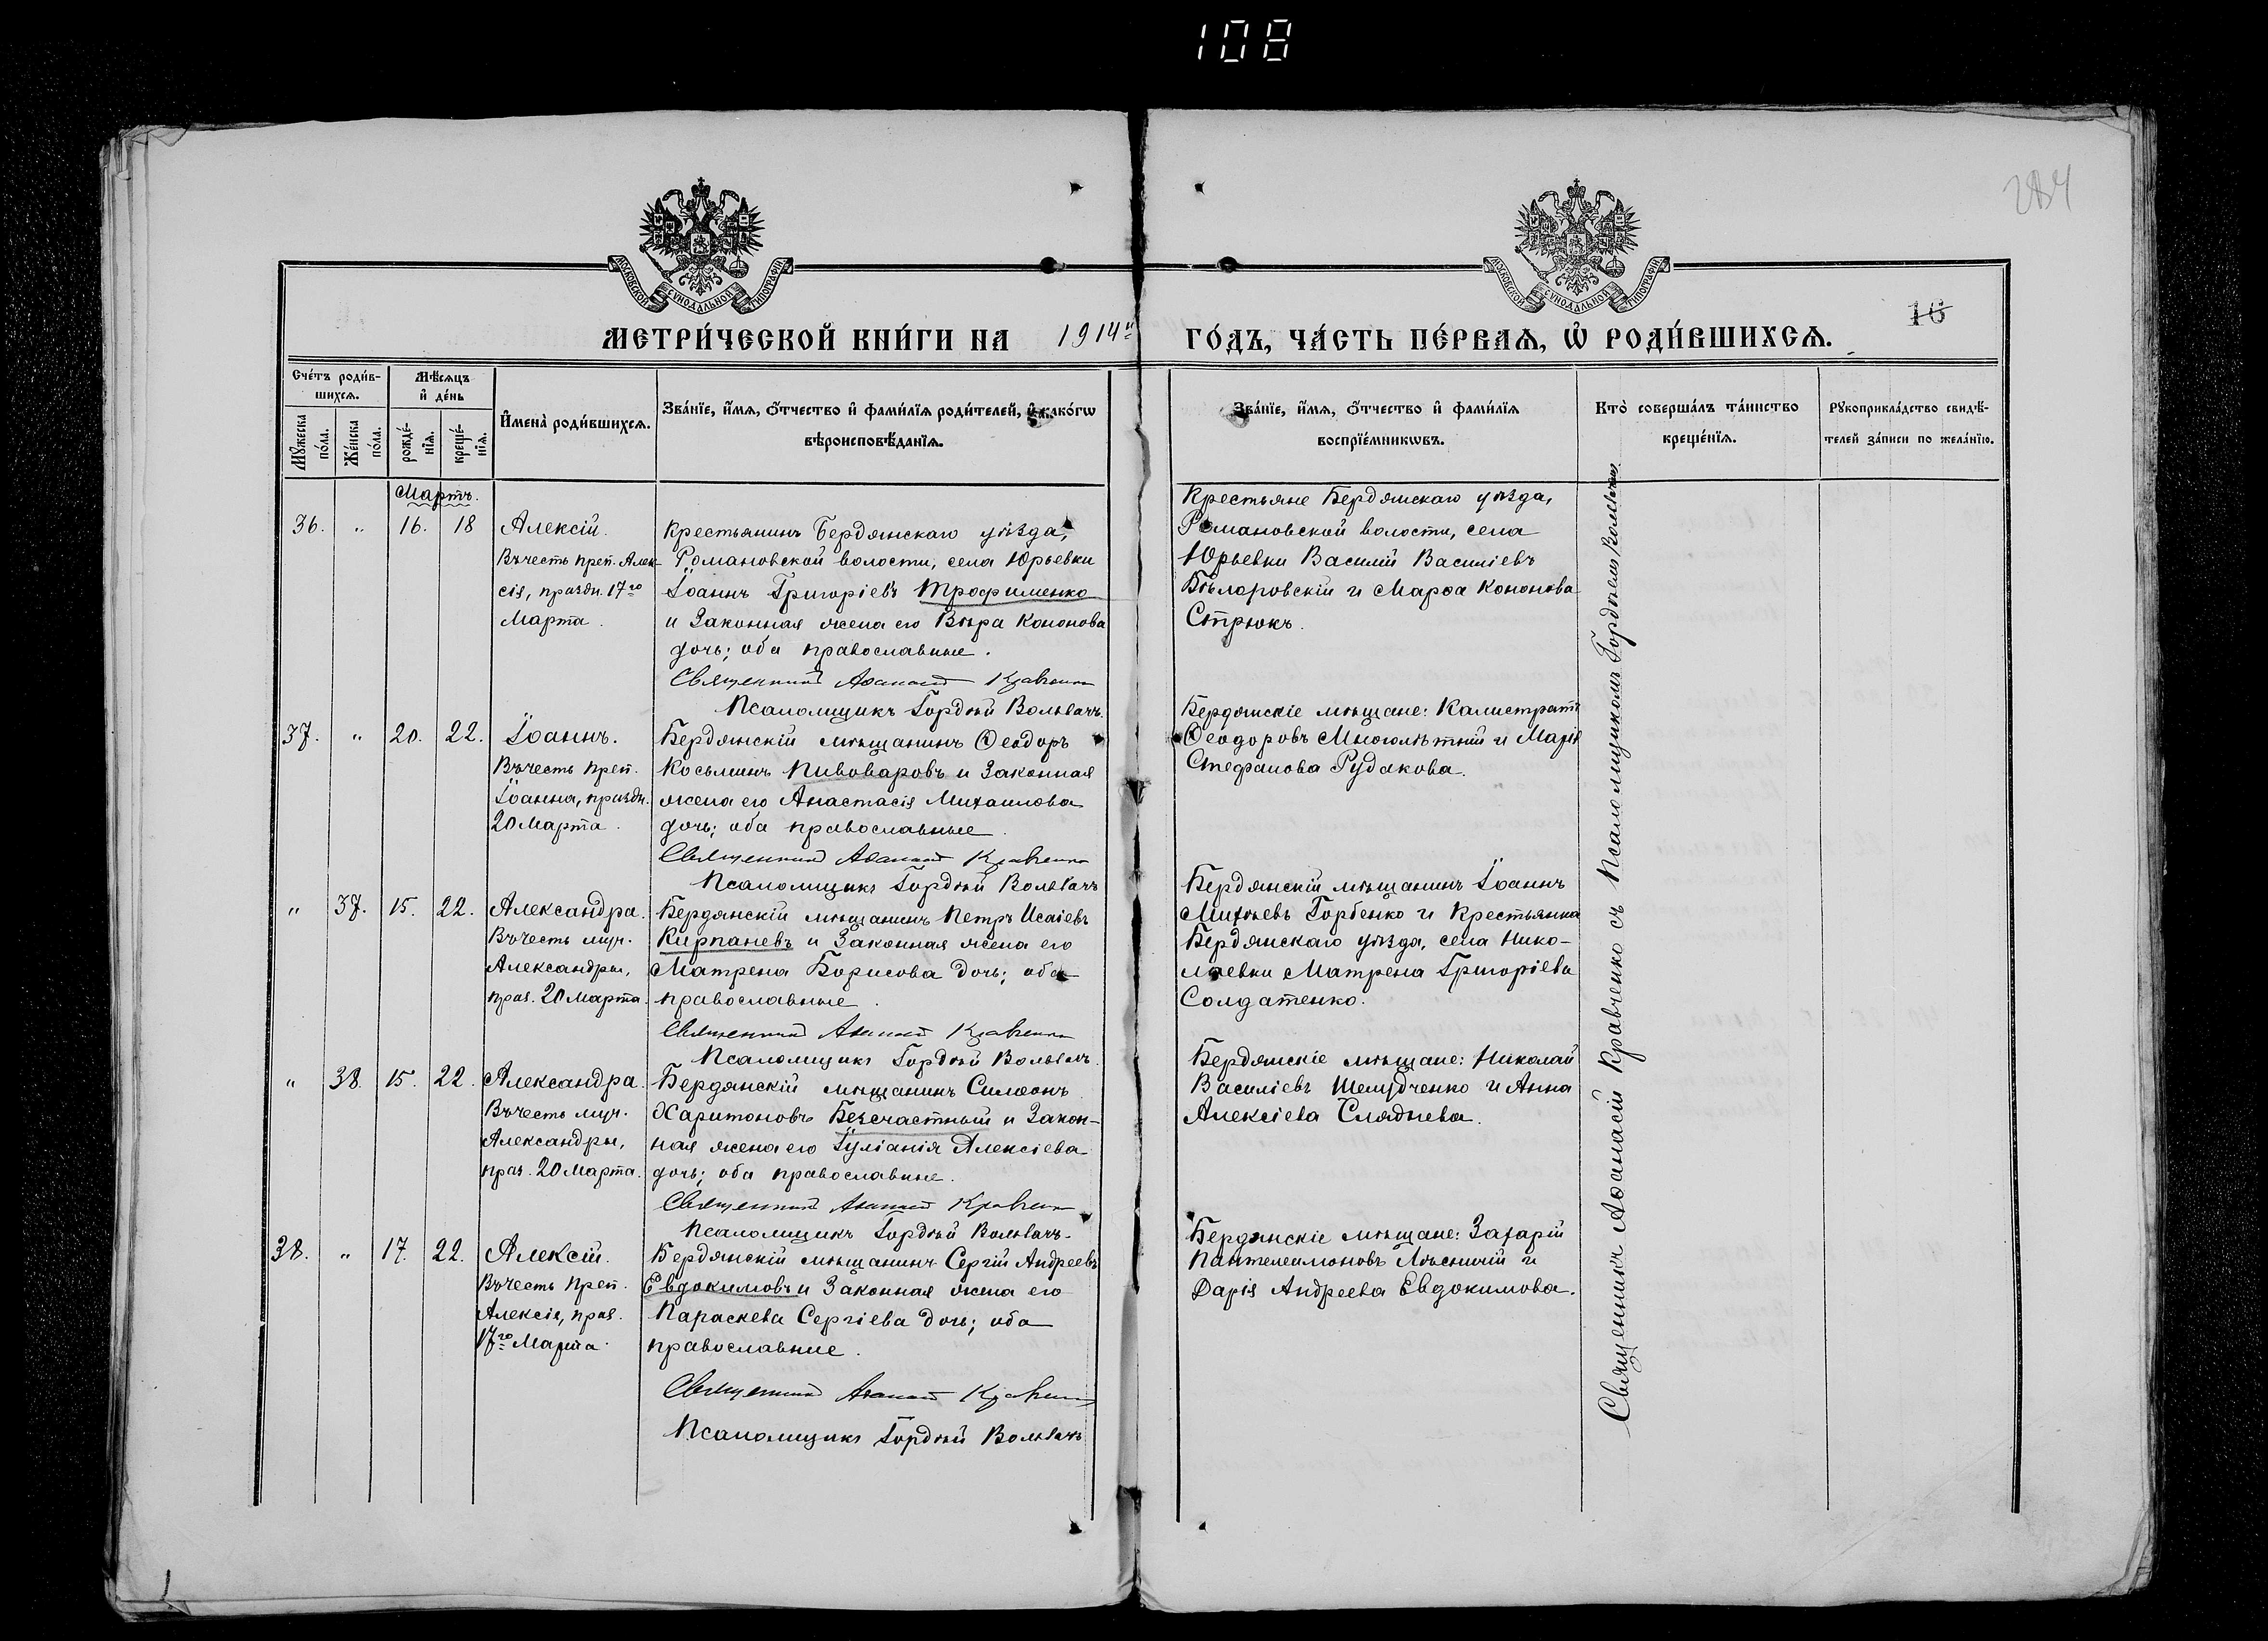 108
284
16
МОСКОВСКОЙ СѴНОДАЛЬНОЙ ТИПОГРАФІИ
МОСКОВСКОЙ СѴНОДАЛЬНОЙ ТИПОГРАФІИ
МЕТРИ́ЧЕСКОЙ КНИ́ГИ НА 1914й ГО́ДЪ, ЧА́СТЬ ПЕ́РВАѦ, Ѡ҆ РОДИ́ВШИХСѦ.
Сче́тъ роди́в-
шихсѧ.
Мꙋжеска по́ла.
Же́нска по́ла.
Мѣ́сѧцъ
и҆ де́нь
рожде́-
нїѧ.
креще́-
нїѧ.
И҆мена̀ роди́вшихсѧ.
Зва́нїе, и҆́мѧ, ѻ҆́тчество и҆ фами́лїѧ роди́телей, и҆ како́гѡ
вѣроисповѣ́данїѧ.
Зва́нїе, и҆́мѧ, ѻ҆́тчество и҆ фами́лїѧ
воспрїе́мникѡвъ.
Кто̀ соверша́лъ та́инство
креще́нїѧ.
Рꙋкоприкла́дство свидѣ́-
телей за́писи по жела́нїю.
Мартъ.
36. " 16. 18 Алексій.
Въ честь преп. Алек-
сія, праздн. 17го
Марта.
Крестьянинъ Бердянскаго уѣзда,
Романовской волости, села Юрьевки
Іоаннъ Григоріевъ Трофименко
и законная жена его Вѣра Кононова
дочь; оба православные.
Священникъ Аѳанасій Кравченко
Псаломщикъ Гордѣй Вольвачъ.
Крестьяне Бердянскаго уѣзда,
Романовской волости, села
Юрьевки Василій Василіевъ
Бѣлоровскій и Марѳа Кононова
Стрюкъ.
37. " 20. 22. Іоаннъ.
Въ честь преп.
Іоанна, праздн.
20 Марта.
Бердянскій мѣщанинъ Ѳеодоръ
Косьминъ Пивоваровъ и законная
жена его Анастасія Михаилова
дочь; оба православные.
Священникъ Аѳанасій Кравченко
Псаломщикъ Гордѣй Вольвачъ
Бердянскіе мѣщане: Калистратъ
Ѳеодоровъ Многолѣтній и Марія
Стефанова Рудакова.
" 37. 15. 22. Александра.
Въ честь муч.
Александры,
праз. 20 Марта.
Бердянскій мѣщанинъ Петръ Исаіевъ
Кирпаневъ и законная жена его
Матрена Борисова дочь; оба
православные.
Священникъ Аѳанасій Кравченко
Псаломщикъ Гордѣй Вольвачъ.
Бердянскій мѣщанинъ Іоаннъ
Михѣевъ Горбенко и крестьянка
Бердянскаго уѣзда, села Нико-
лаевки Матрена Григоріева
Солдатенко.
" 38. 15. 22. Александра.
Въ честь муч.
Александры,
праз. 20 Марта.
Бердянскій мѣщанинъ Симеонъ
Харитоновъ Безсчастный и закон-
ная жена его Іуліанія Алексіева
дочь; оба православные.
Священникъ Аѳанасій Кравченко
Псаломщикъ Гордѣй Вольвачъ.
Бердянскіе мѣщане: Николай
Василіевъ Шелудченко и Анна
Алексіева Сляднева.
38. " 17. 22. Алексій.
Въ честь преп.
Алексія, праз.
17го Марта.
Бердянскій мѣщанинъ Сергій Андреевъ
Евдокимовъ и законная жена его
Параскева Сергіева дочь; оба
православные.
Священникъ Аѳанасій Кравченко
Псаломщикъ Гордѣй Вольвачъ
Бердянскіе мѣщане: Захарій
Пантелеимоновъ Лѣсничій и
Дарія Андреева Евдокимова.
Священникъ Аѳанасій Кравченко съ Псаломщикомъ Гордѣемъ Вольвачъ